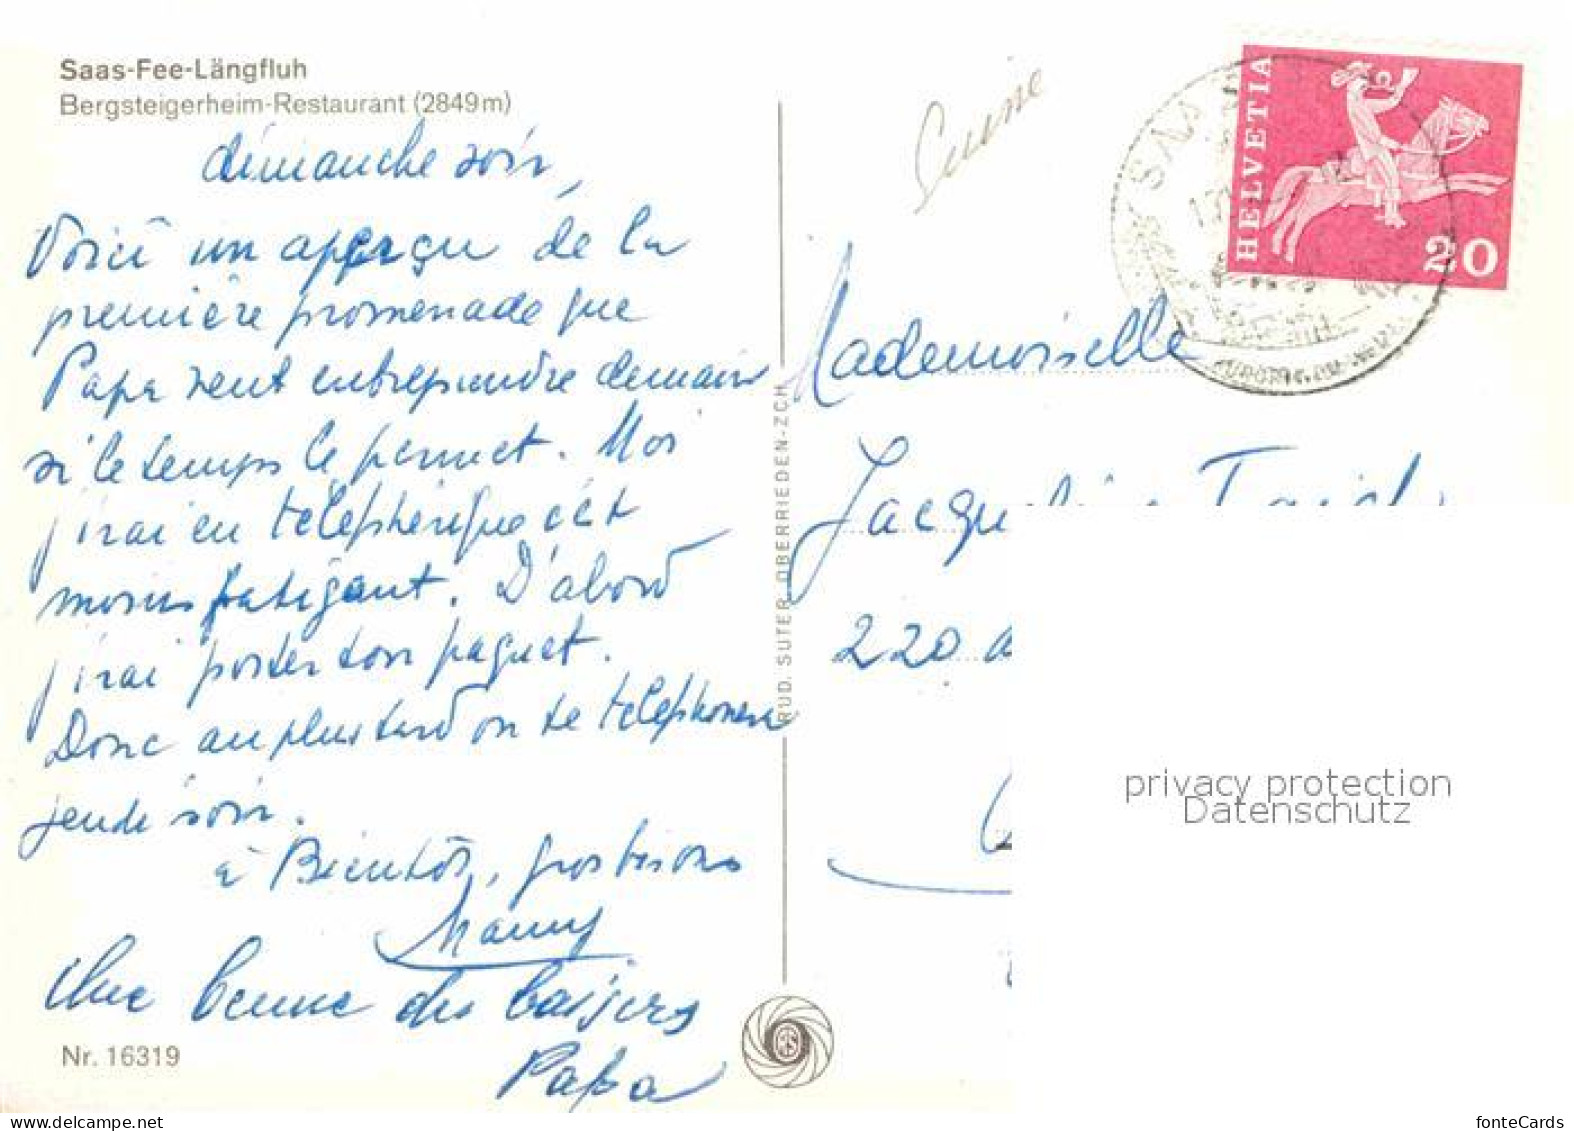 Saas-Fee-Längfluh
Bergsteigerheim-Restaurant (2849m)
dimanche soir,
Voici un aperçu de la
première promenade que
Papa veut entreprendre demain
si le temps le permet. Moi
j'irai en téléphérique c'est
moins fatigant. D'abord
j'irai poster ton paquet.
Donc au plus tard on te telephonera
jeudi soir.
à Bientôt, gros bisous
Mamy
des baisers
Papa
Nr. 16319
RUD. SUTER OBERRIEDEN-ZCH
HELVETIA
20
Mademoiselle
220
privacy protection
Datenschutz
www.delcampe.net
fonteCards